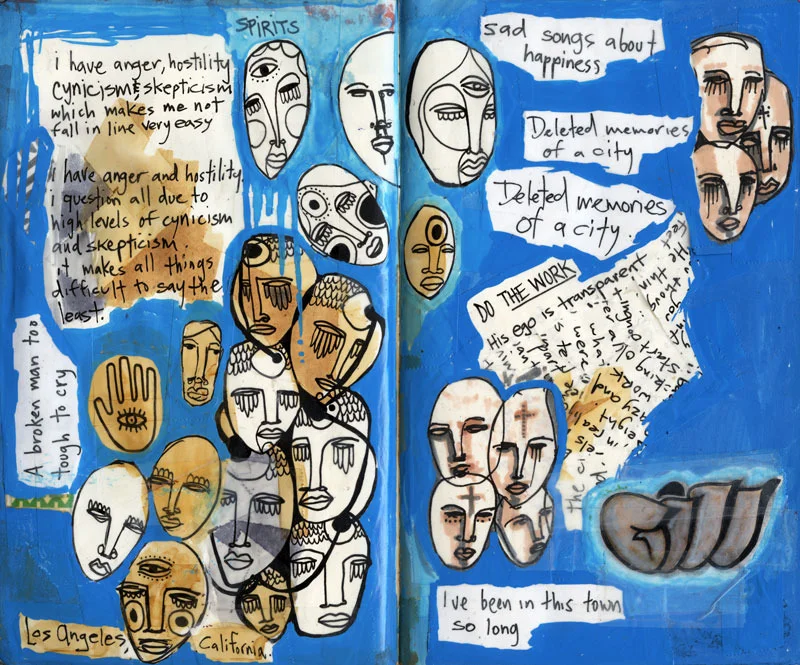 SPIRITS
i have anger, hostility
cynicism & skepticism
which makes me not
fall in line very easy
i have anger and hostility.
i question all due to
high levels of cynicism
and skepticism.
it makes all things
difficult to say the
least.
A broken man too
tough to cry
Los Angeles,
California.
sad songs about
happiness
Deleted memories
of a city
Deleted memories
of a city
DO THE WORK
His ego is transparent
I've been in this town
so long